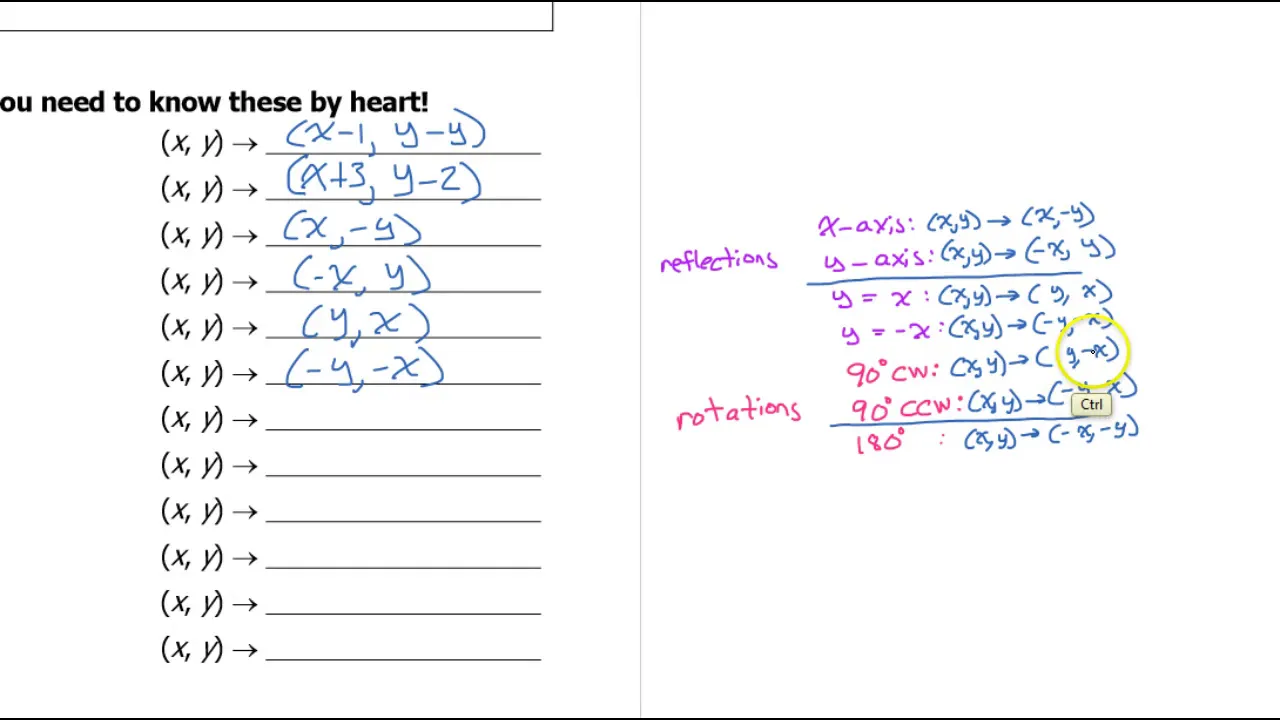 ou need to know these by heart!
(x, y) → (x-1, y-y)
(x, y) → (x+3, y-2)
(x, y) → (x, -y)
(x, y) → (-x, y)
(x, y) → (y, x)
(x, y) → (-y, -x)
(x, y) →
(x, y) →
(x, y) →
(x, y) →
(x, y) →
(x, y) →
reflections
x-axis: (x,y) → (x,-y)
y-axis: (x,y) → (-x, y)
y = x : (x,y) → (y, x)
y = -x : (x,y) → (-y, -x)
rotations
90° CW: (x,y) → (y,-x)
90° CCW: (x,y) → (-y, x)
180° : (x,y) → (-x,-y)
Ctrl